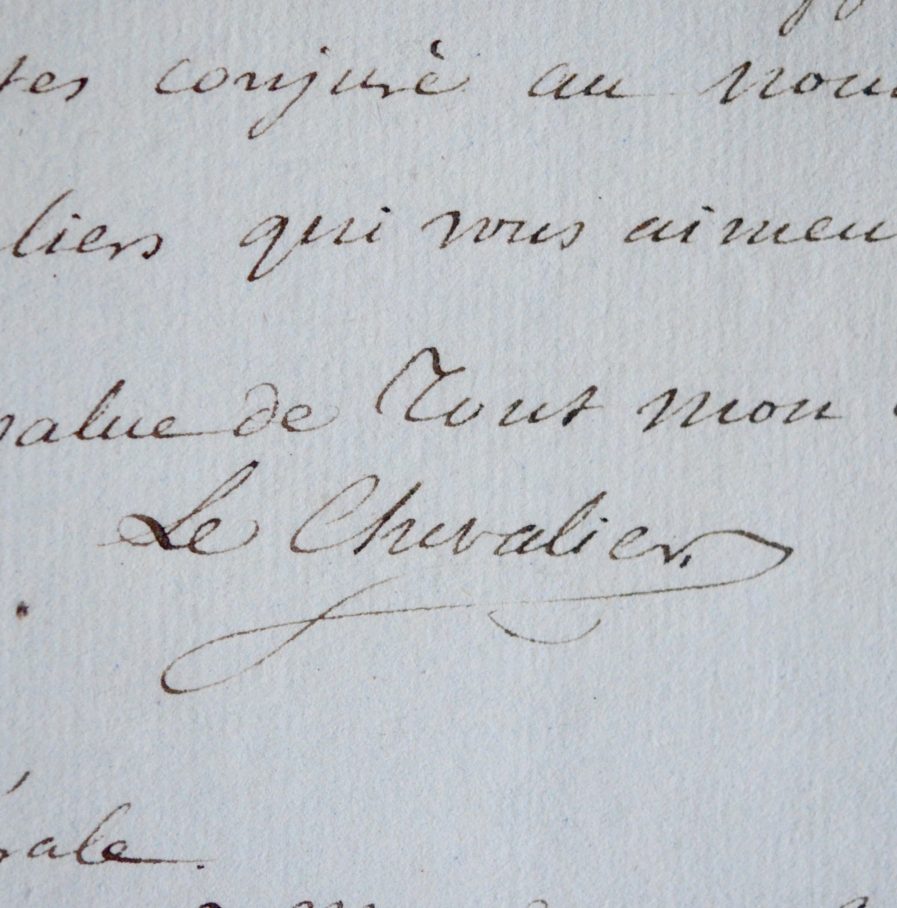 tes conjuré au nom
liers qui vous aimen
salue de Tout mon
Le Chevalier
rale.